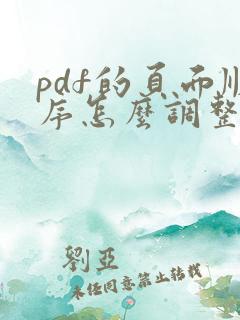 pdf的頁面順
序怎麼調整
劉亞
未經同意禁止轉載